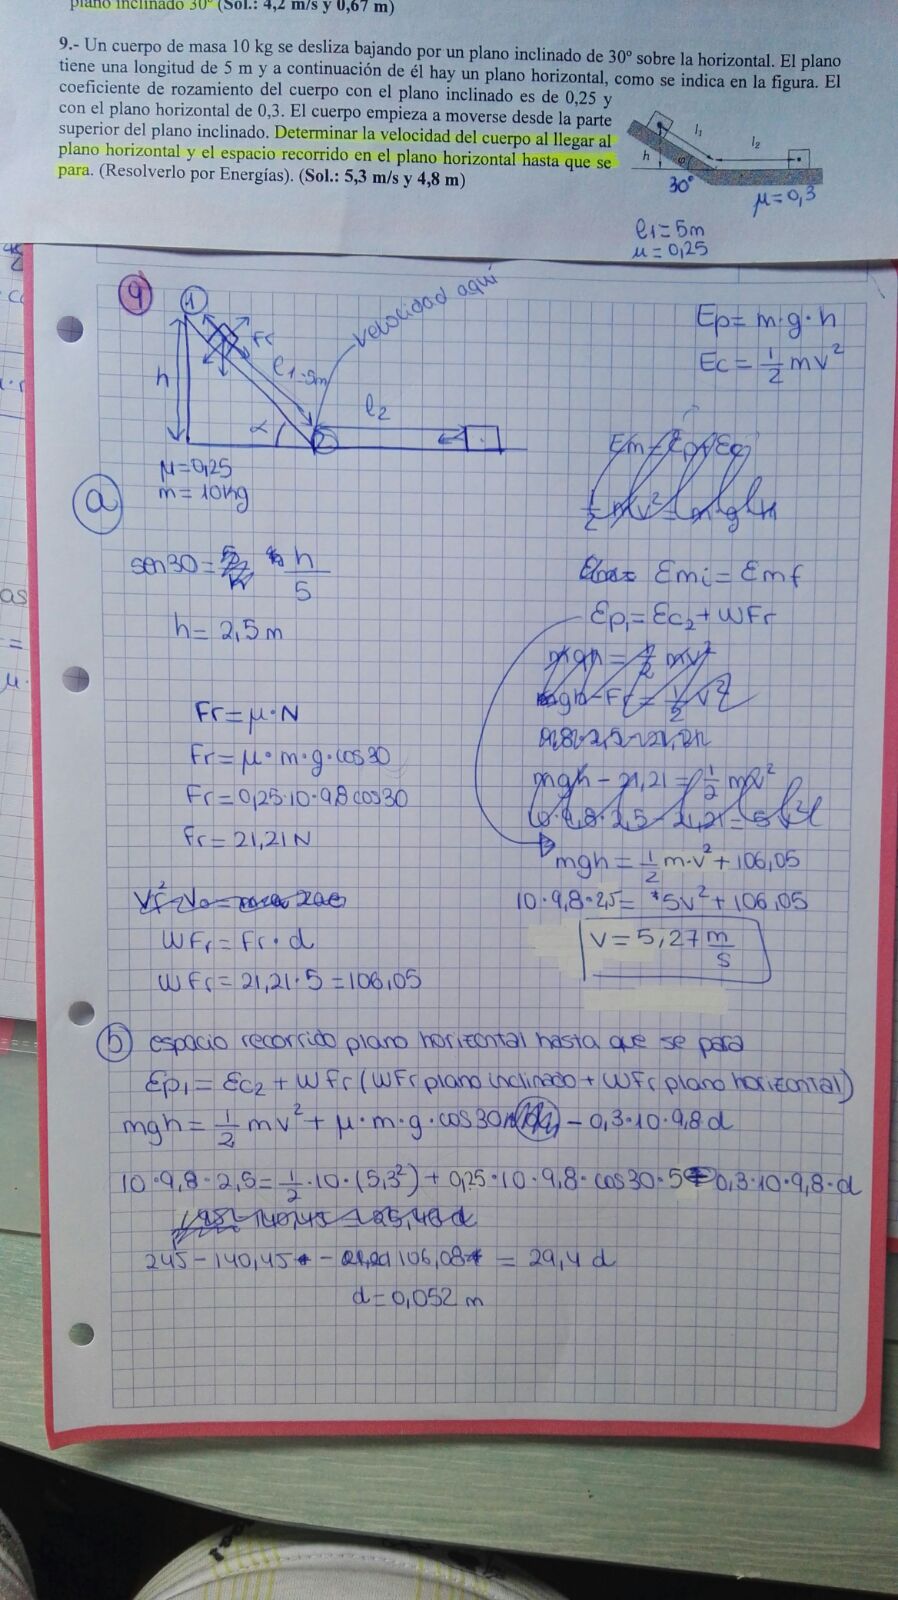 plano inclinado 30º (Sol.: 4,2 m/s y 0,67 m)
9.- Un cuerpo de masa 10 kg se desliza bajando por un plano inclinado de 30º sobre la horizontal. El plano
tiene una longitud de 5 m y a continuación de él hay un plano horizontal, como se indica en la figura. El
coeficiente de rozamiento del cuerpo con el plano inclinado es de 0,25 y
con el plano horizontal de 0,3. El cuerpo empieza a moverse desde la parte
superior del plano inclinado. Determinar la velocidad del cuerpo al llegar al
plano horizontal y el espacio recorrido en el plano horizontal hasta que se
para. (Resolverlo por Energías). (Sol.: 5,3 m/s y 4,8 m)
l₁
l₂
h
φ
30º
μ=0,3
l1=5m
μ=0,25
9
1
velocidad aquí
Fr
h
l1=5m
l2
α
2
μ=0,25
m=10kg
Ep=m·g·h
Ec=½mv²
Em=Ep+Ec
½mv²=m·g·h
a
sen30= h/5
h=2,5m
Emi=Emf
Ep₁=Ec₂+WFr
mgh=½mv²
mgh-Fr=½v²
Fr=μ·N
Fr=μ·m·g·cos30
Fr=0,25·10·9,8cos30
Fr=21,21N
mgh-21,21=½mv²
10·9,8·2,5-21,21=5v²
mgh=½m·v²+106,05
10·9,8·2,5=5v²+106,05
v=5,27 m/s
WFr=Fr·d
WFr=21,21·5=106,05
b espacio recorrido plano horizontal hasta que se para
Ep₁=Ec₂+WFr(WFr plano inclinado+WFr plano horizontal)
mgh=½mv²+μ·m·g·cos30 -0,3·10·9,8d
10·9,8·2,5=½·10·(5,3²)+0,25·10·9,8·cos30·5 0,3·10·9,8·d
245-140,45-106,08=29,4d
d=0,052m